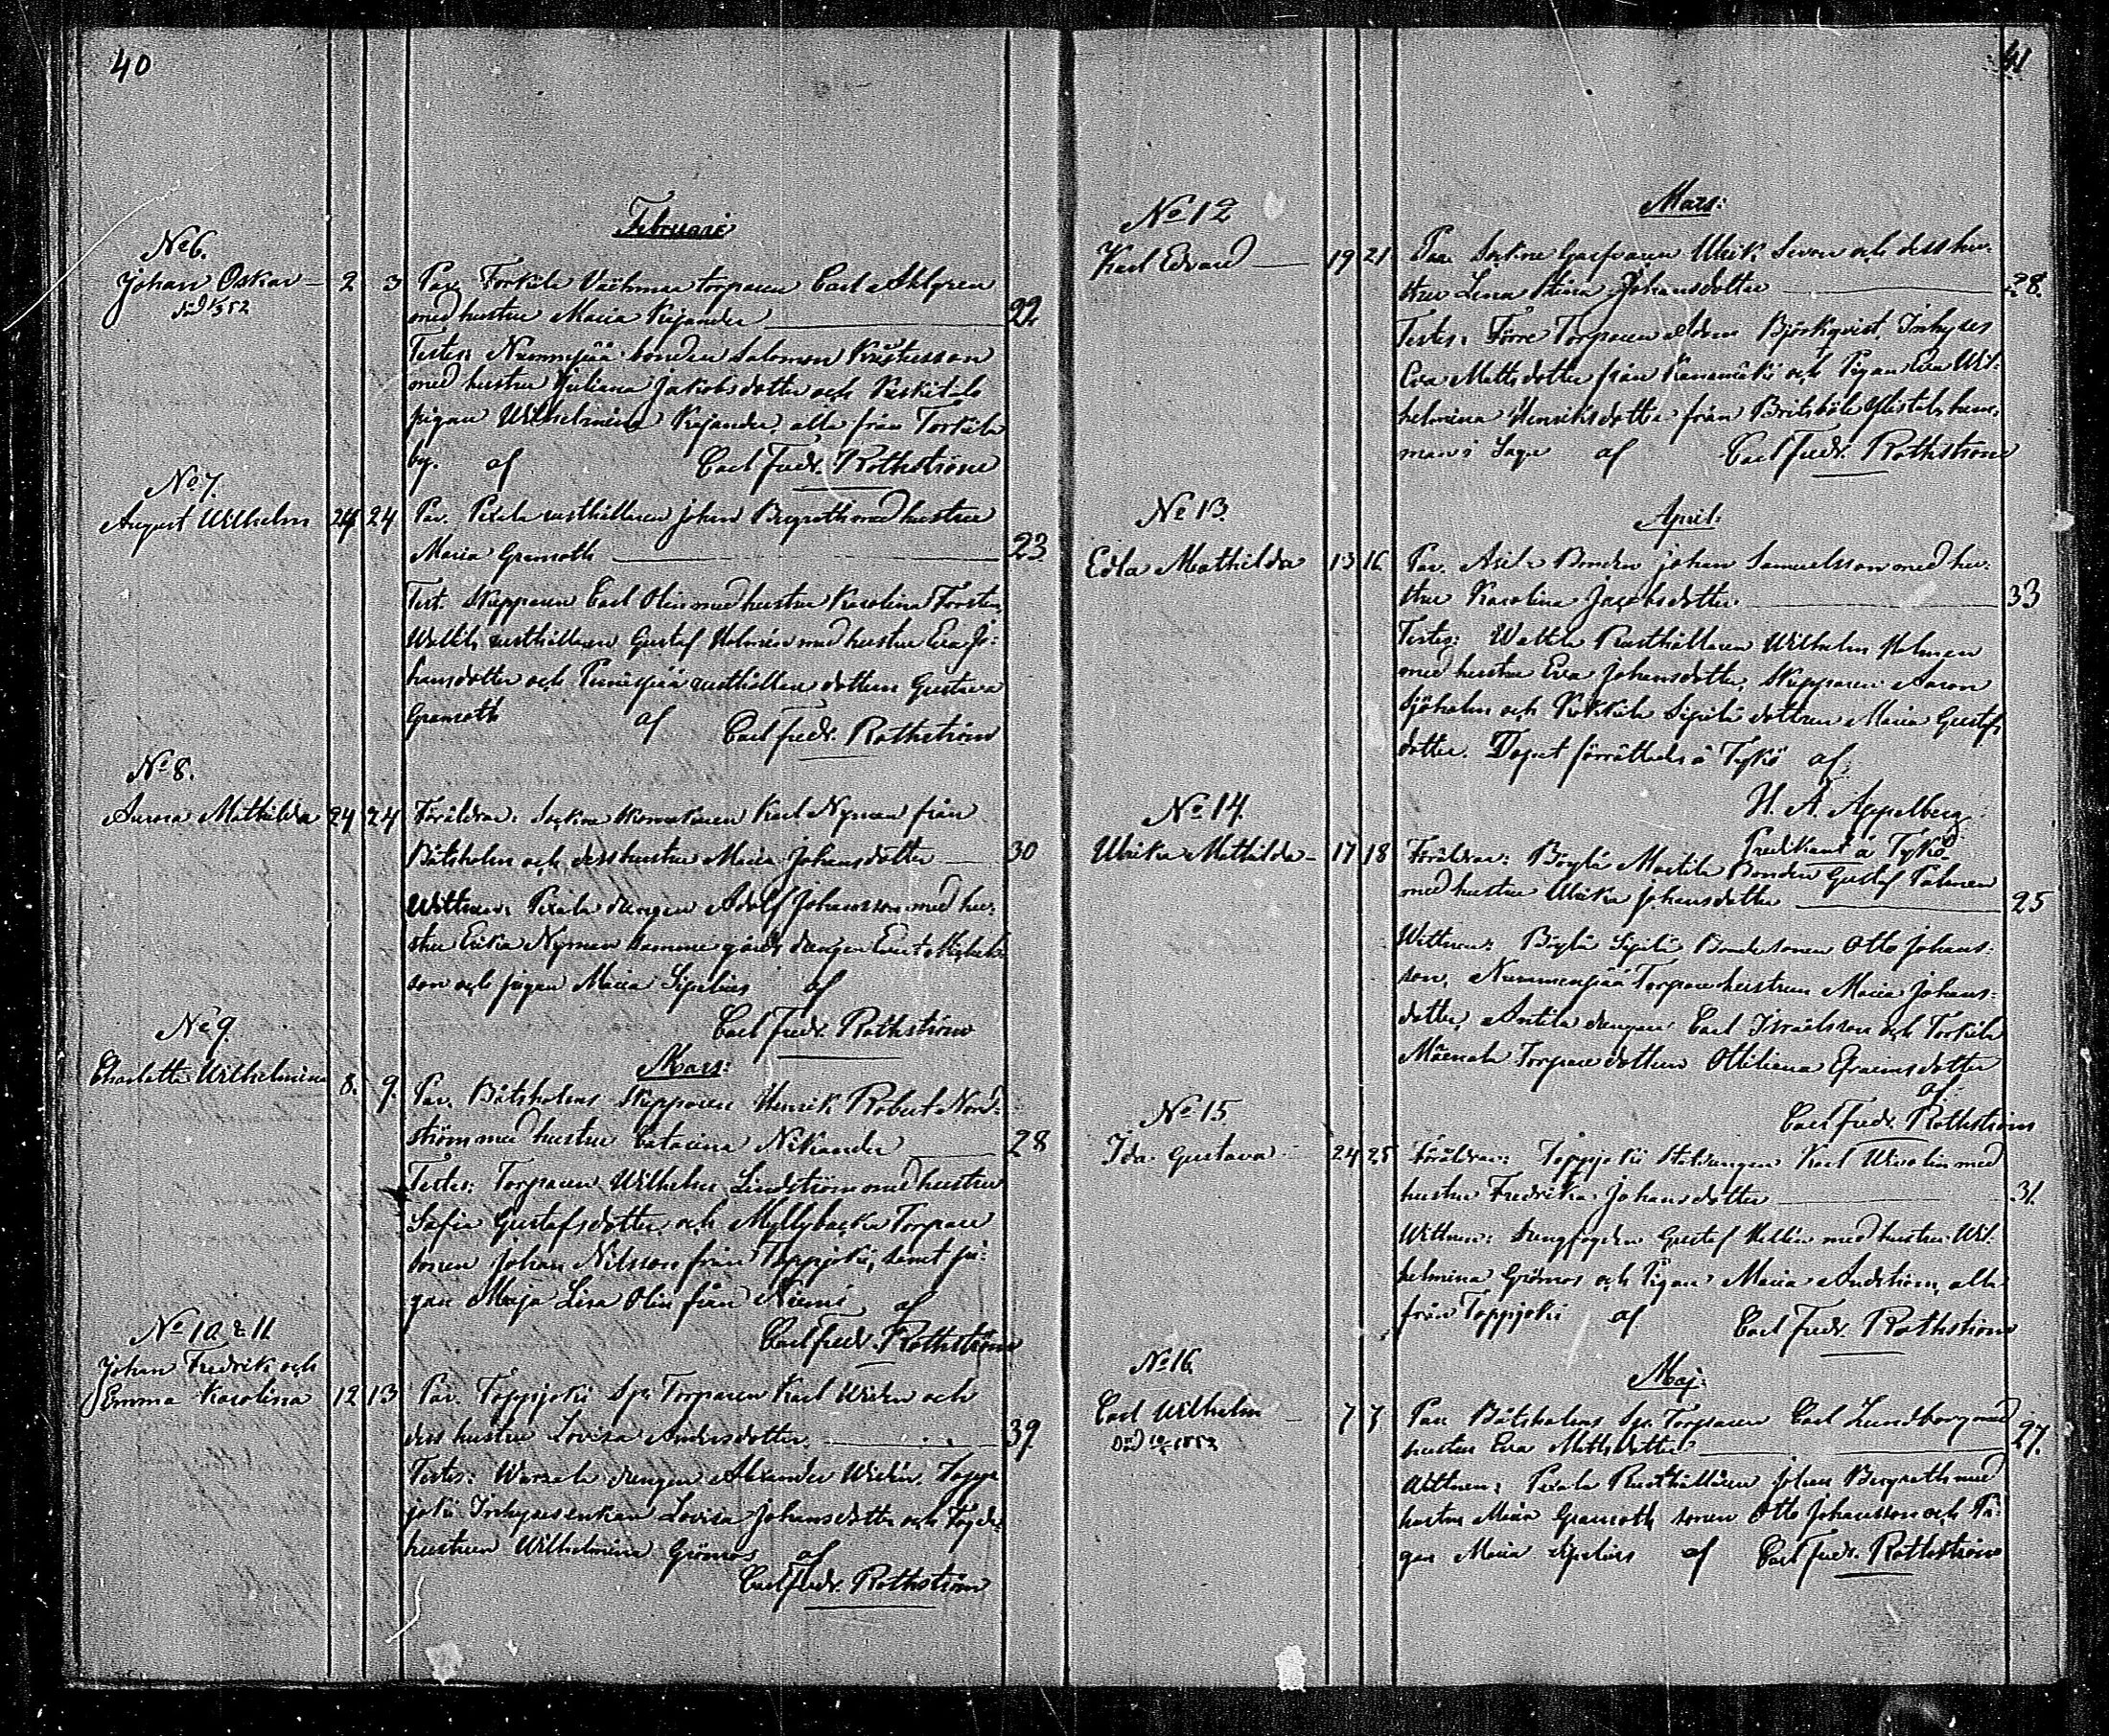 40
Februari
No 6.
Johan Oskar — 2 3 Par. Torkila Vächmae torparen Carl Ahlgren
död 1/3 52
med hustru Maria Kejander 22
Testes: Nummenpää bonden Salomon Kristersson
med hustru Juliana Jakobsdotter och Keskitalo
pigan Wilhelmina Kejander, alla från Torkila
by. af Carl Fredr. Rothström
No 7.
August Wilhelm 24 24 Par. Pexala rusthållaren Johan Bergroth med hustru
Maria Granroth 23.
Test. Skepparen Carl Olin med hustru Karolina Forsten,
rusthållaren Gustaf Holmén med hustru Eva Jo-
hansdotter och rusthållare dottern Gustava
Granroth af Carl Fredr. Rothström
No 8.
Aurora Mathilda 24 24 Föräldrar: Sockne skomakaren Karl Nyman från
Båtsholm och dess hustru Maria Johansdotter — 30
Wittnen: Pexala drengen Adolf Johansson med hu-
stru Erika Nyman samma gårds drengen
son och pigan Maria Sipelius af
Carl Fredr. Rothström
Mars:
No 9.
Charlotta Wilhelmina 8. 9. Par. Båtsholms Skepparen Henrik Robert Nord-
ström med hustru Catarina Nikander 28
Testes: Torparen Wilhelm Lindström med hustru
Sofia Gustafsdotter och Myllybacka Torpare
sonen Johan Nilsson från Teppjoki, samt pi-
gan Maja Lisa Olin från Niemi af
Carl Fredr. Rothström
No 10 & 11
Johan Fredrik och
Emma Karolina 12 13 Par. Toppjoki Sp. Torparen Karl Widen och
dess hustru Lovisa Andersdotter. 39.
Testes: drengen Alexander Widén, Topp-
joki Inhysesenkan Lovisa Johansdotter och Fogde-
hustrun Wilhelmina Grönros af
Carl Fredr. Rothström
41
Mars:
No 12
Karl Edvard — 19 21 Par. Sockne Garfvaren Ulrik och dess hu-
stru Lena Stina Johansdotter 28.
Testes: Förre Torparen Adam Björkqvist, Inhyses
Eva Mattsdotter från och Pigan Eva Wil-
helmina Henriksdotter från Britsböle hem-
man i Sagu af Carl Fredr. Rothström
April:
No 13.
Edla Mathilda 13 16 Par. Bonden Johan Samuelsson med hu-
stru Karolina Jacobsdotter. 33
Testes: Rusthållaren Wilhelm Holmen
med hustru Eva Johansdotter, Skepparen Aaron
Sjöholm och Sipilä dottren Maria Gustafs
dotter. Dopet förrättades å Tykö af
H. A. Appelberg
Predikant å Tykö
No 14.
Ulrika Mathilda — 17 18 Föräldrar: Böylä Martila Bonden Gustaf Palmen
med hustru Ulrika Johansdotter 25
Wittnen: Böylä Sipilä Bondesonen Otto Johans-
son, Nummenpää Torparehustrun Maria Johans-
dotter, Antila drengen Carl Israelsson och Torkila
Mäenala Torpare dottern Ottiliana Efraimsdotter
af
Carl Fredr. Rothström
No 15.
Ida Gustava 24 25 Föräldrar: Toppjoki Statdrengen Karl med
hustru Fredrika Johansdotter 31.
Wittnen: Drengfogden Gustaf Hellén med hustru Wil-
helmina Grönros och Pigan Maria Andström, alla
från Toppjoki af Carl Fredr. Rothström
Maj:
No 16.
Carl Wilhelm — 7 7 Par. Båtsholms Sp. Torparen Carl Lundborg med
hustru Eva Mattsdotter 27.
Wittnen: Pexala Rusthållaren Johan Bergroth med
hustru Maria Granroth sonen Otto Johansson och Pi-
gan Maria Sipelius af Carl Fredr. Rothström